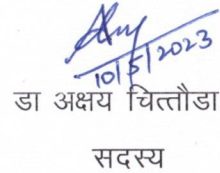 10/5/2023
डा अक्षय चित्तौडा
सदस्य